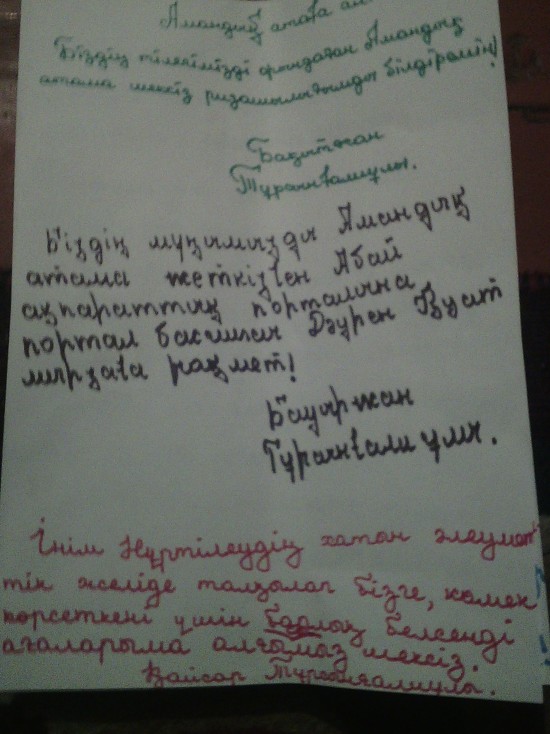 Амандық атаға
Біздің тілегімізді орындаған Амандық
атама шексіз ризашылығымды білдіремін!
Бақытжан
Тұрсынғалиұлы.
Біздің мұңымызды Амандық
атама жеткізген Абай
ақпараттық порталына
портал басшысы Дәурен Қуат
мырзаға рахмет!
Бауыржан
Тұрсынғалиұлы.
Інім Нұртілеудің хатын әлеумет
тік желіде талқылап бізге, көмек
көрсеткені үшін барлық белсенді
ағаларыма алғымыз шексіз.
Қайсар Тұрсынғалиұлы.